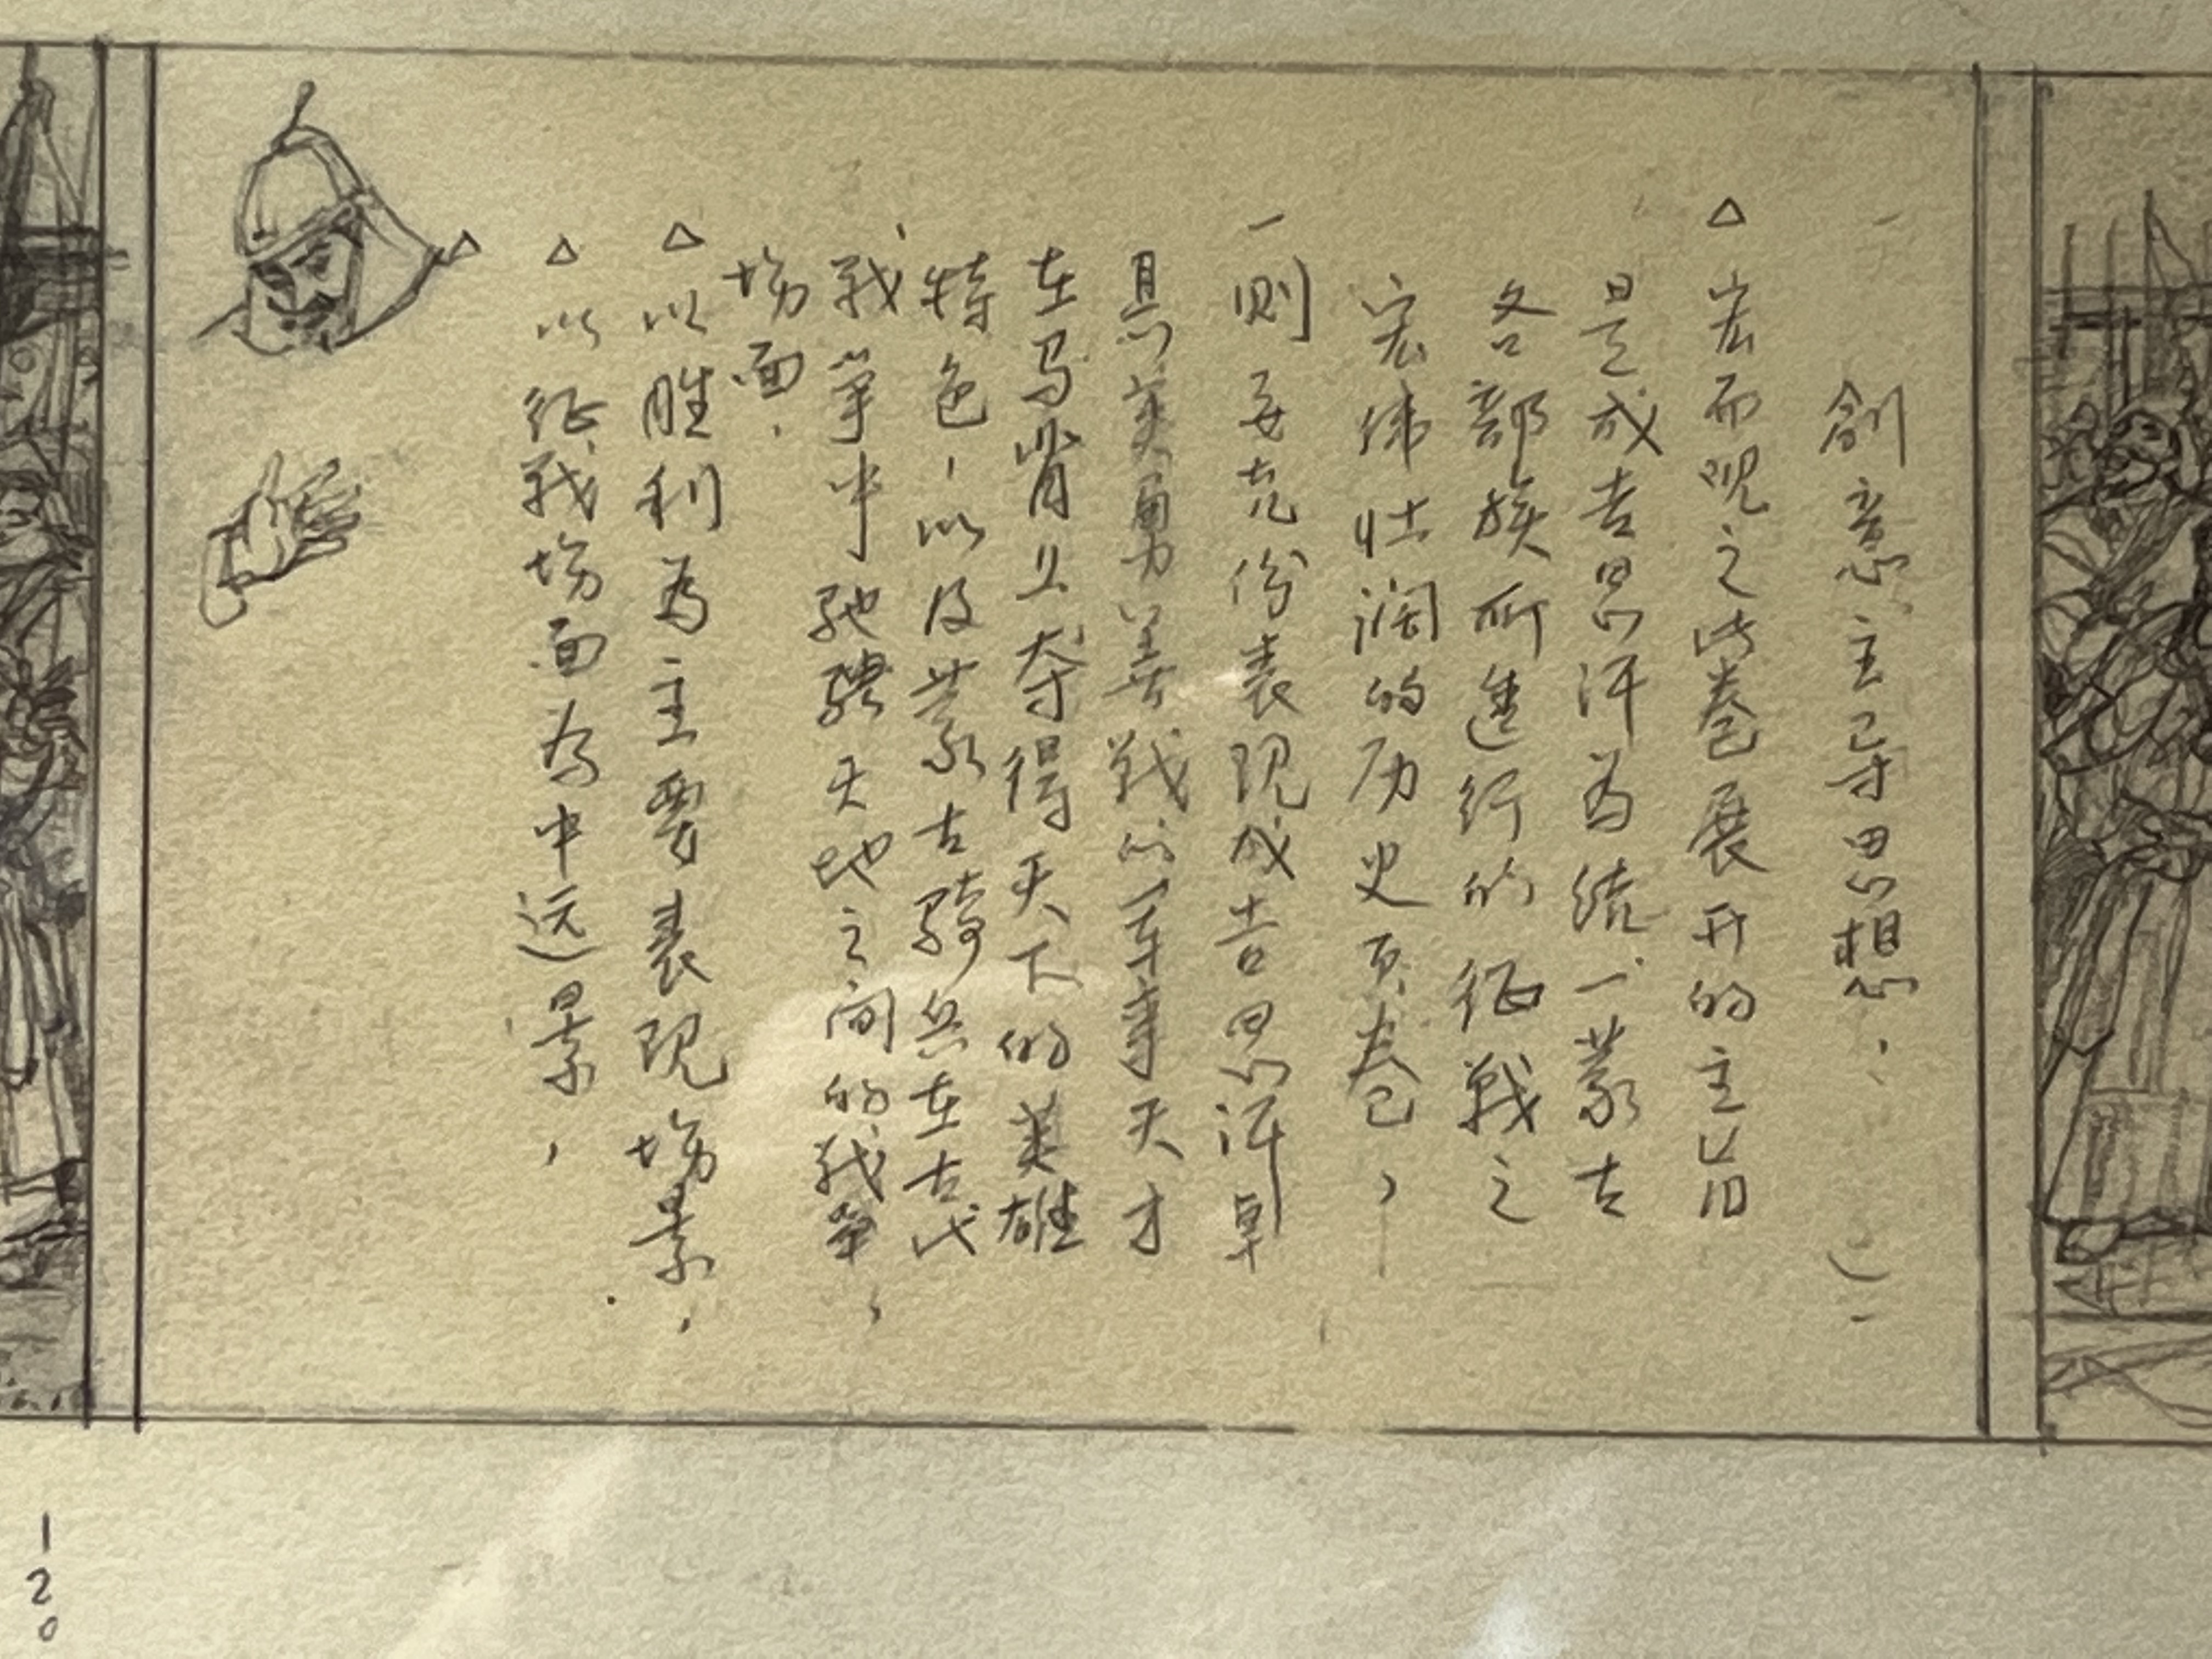 創意主导思想：
△宏而观之此卷展开的主旨
是成吉思汗为统一蒙古
各部族所進行的征戰之
宏伟壮阔的历史页卷，
一则要充份表现成吉思汗卓
英勇善战的军事天才
在马背上夺得天下的英雄
特色，以及蒙古骑兵在古代
戰爭中驰骋天地之间的戰爭，
場面．
△以胜利為主要表现場景，
△以征戰場面为中远景，
△
120